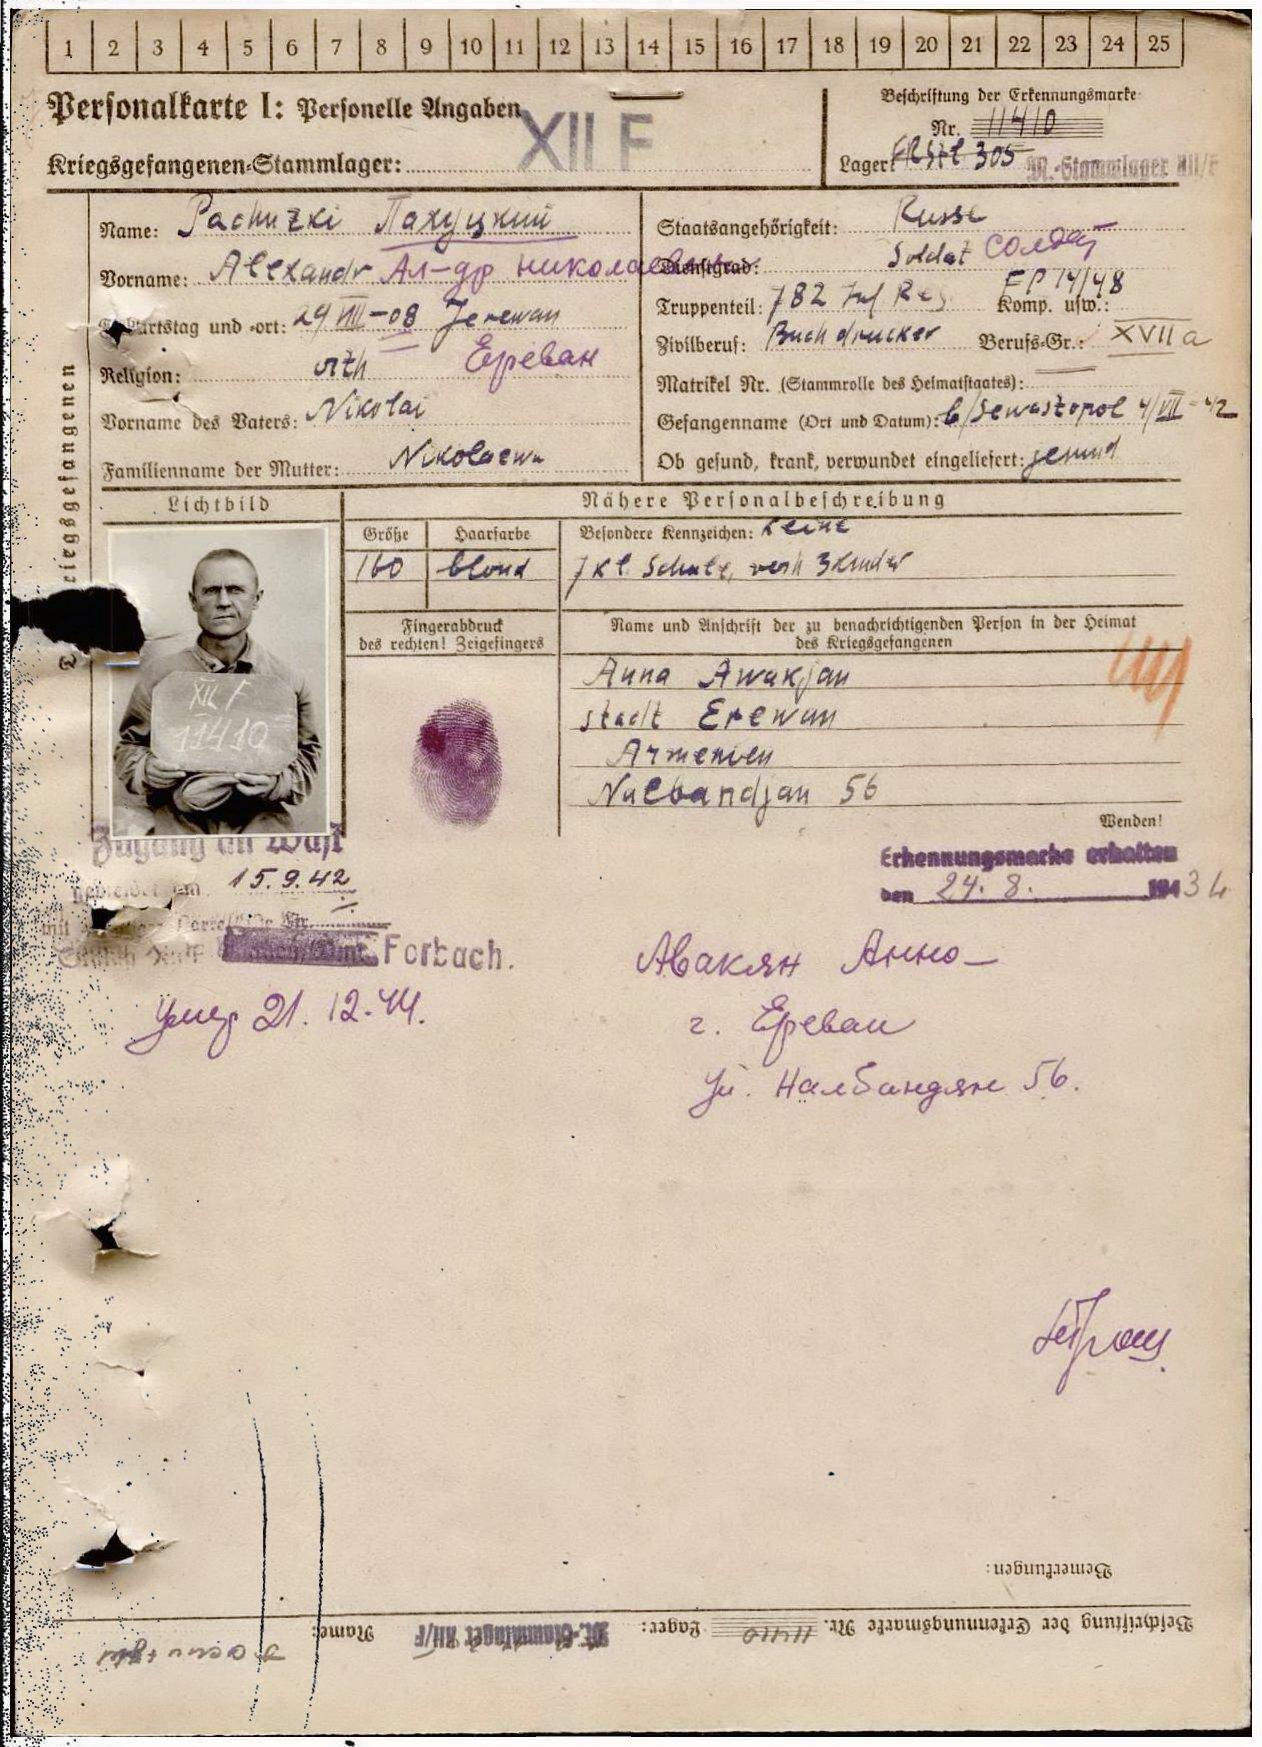 1 2 3 4 5 6 7 8 9 10 11 12 13 14 15 16 17 18 19 20 21 22 23 24 25
Personalkarte I: Personelle Angaben
XII F
Kriegsgefangenen-Stammlager:
Beschriftung der Erkennungsmarke
Nr. 11410
Lager: 305 M.-Stammlager XII/F
Name: Pachuzki Пахуцкий
Vorname: Alexandr Ал-др Николаевич
Geburtstag und -ort: 29 VIII-08 Jerewan
Религion: orth Ереван
Vorname des Vaters: Nikolai
Familienname der Mutter: Nikolaewa
Staatsangehörigkeit: Russe
Dienstgrad: Soldat Солдат
Truppenteil: 782 Inf Reg. Komp. usw.: EP 14/48
Zivilberuf: Buchdrucker Berufs-Gr.: XVII a
Matrikel Nr. (Stammrolle des Heimatstaates):
Gefangenname (Ort und Datum): b/Sewastopol 4/VII-42
Ob gesund, krank, verwundet eingeliefert: gesund
Kriegsgefangenen
Lichtbild
XII F
11410
Nähere Personalbeschreibung
Größe Haarfarbe Besondere Kennzeichen: keine
160 blond 7 Kl. Schule, verh 3 Kinder
Fingerabdruck
des rechten! Zeigefingers
Name und Anschrift der zu benachrichtigenden Person in der Heimat
des Kriegsgefangenen
Anna Awakjan
stadt Erewan
Armenien
Nalbandjan 56
Wenden!
Zugang an WASt
gemeldet am 15.9.42
Forbach.
Erkennungsmarke erhalten
den 24. 8. 194
умер 21.12.44.
Авакян Анно
г. Ереван
ул. Налбандян 56.
Bemerkungen:
Beschriftung der Erkennungsmarke Nr. 11410 Lager: M.-Stammlager XII/F Name: